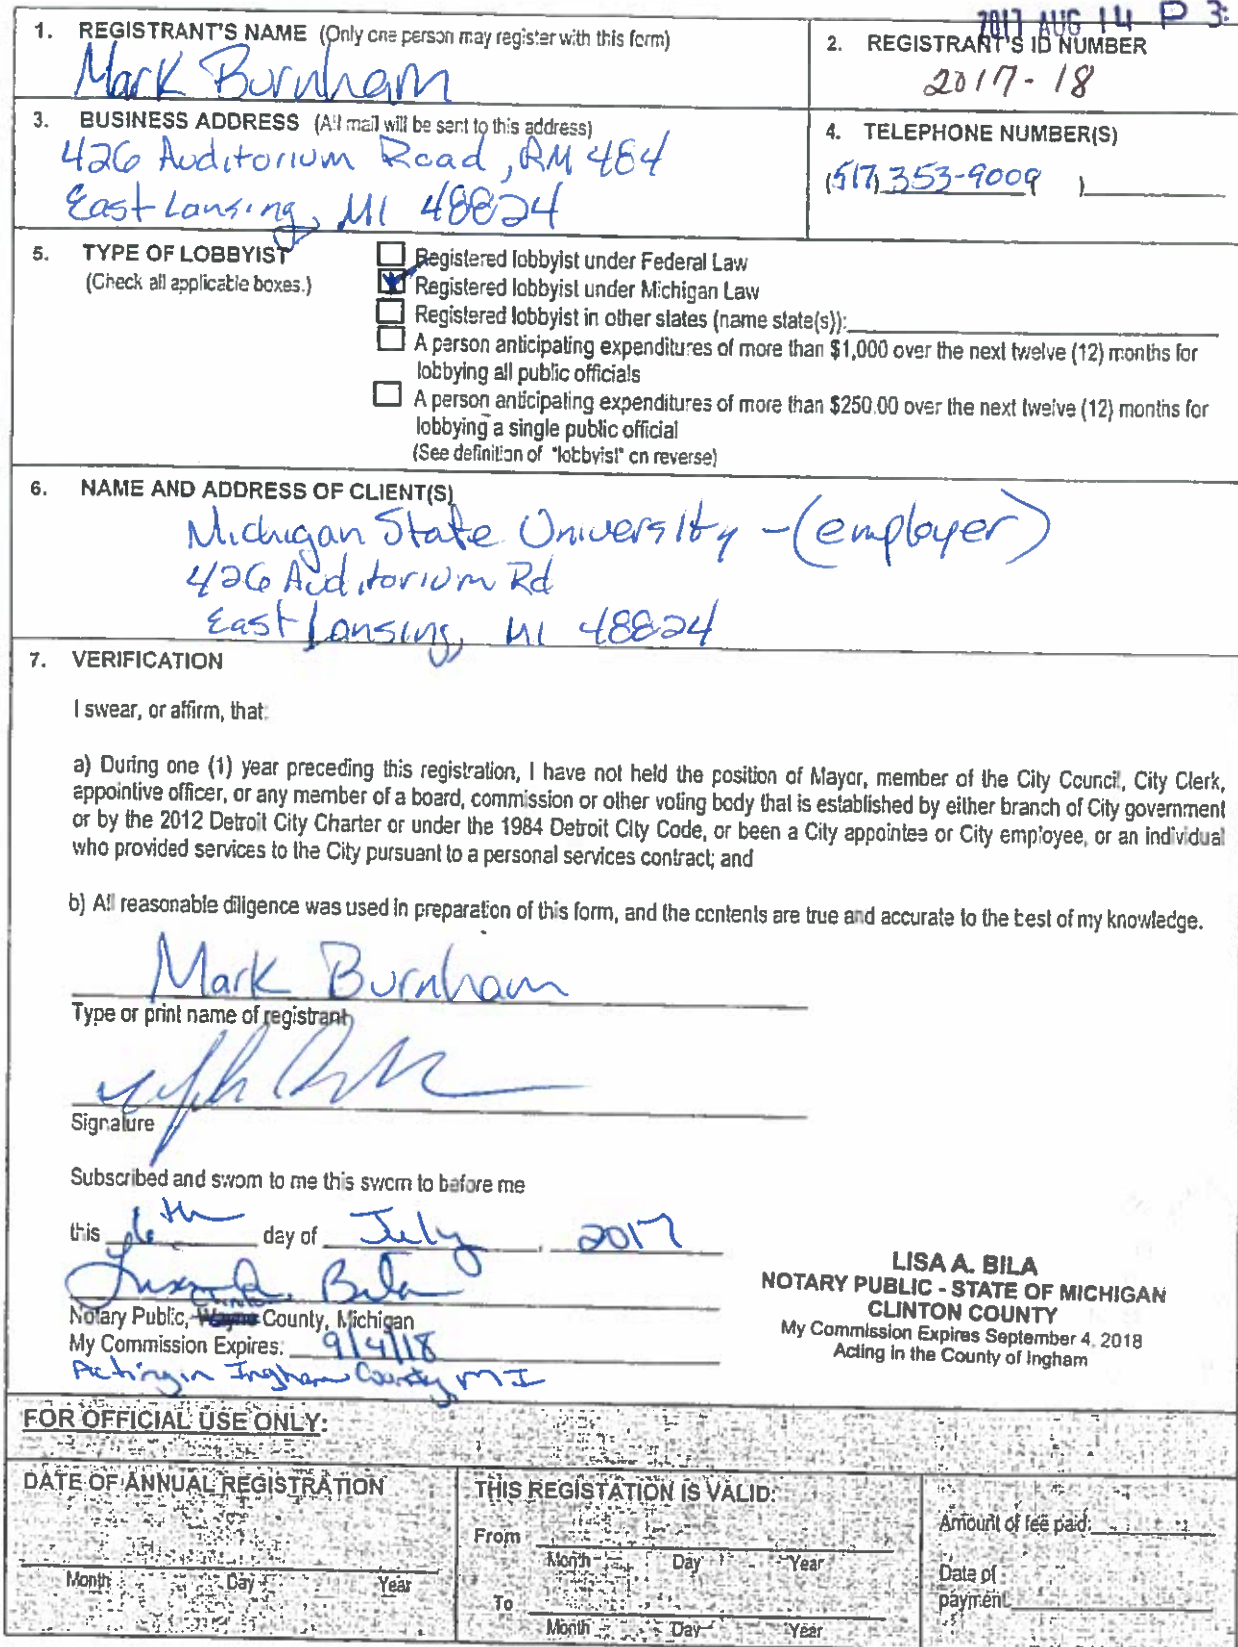 2017 AUG 14 P 3:
1. REGISTRANT'S NAME (Only one person may register with this form)
Mark Burnham
2. REGISTRANT'S ID NUMBER
2017-18
3. BUSINESS ADDRESS (All mail will be sent to this address)
426 Auditorium Road, RM 484
East Lansing, MI 48824
4. TELEPHONE NUMBER(S)
(517) 353-9009 )
5. TYPE OF LOBBYIST
(Check all applicable boxes.)
Registered lobbyist under Federal Law
Registered lobbyist under Michigan Law
Registered lobbyist in other states (name state(s)):
A person anticipating expenditures of more than $1,000 over the next twelve (12) months for
lobbying all public officials
A person anticipating expenditures of more than $250.00 over the next twelve (12) months for
lobbying a single public official
(See definition of "lobbyist" on reverse)
6. NAME AND ADDRESS OF CLIENT(S)
Michigan State University - (employer)
426 Auditorium Rd
East Lansing, MI 48824
7. VERIFICATION
I swear, or affirm, that:
a) During one (1) year preceding this registration, I have not held the position of Mayor, member of the City Council, City Clerk,
appointive officer, or any member of a board, commission or other voting body that is established by either branch of City government
or by the 2012 Detroit City Charter or under the 1984 Detroit City Code, or been a City appointee or City employee, or an individual
who provided services to the City pursuant to a personal services contract; and
b) All reasonable diligence was used in preparation of this form, and the contents are true and accurate to the best of my knowledge.
Mark Burnham
Type or print name of registrant
Signature
Subscribed and sworn to me this sworn to before me
this 6th day of July, 2017
Lisa A. Bila
Notary Public, Wayne Clinton County, Michigan
My Commission Expires: 9/4/18
Acting in Ingham County, MI
LISA A. BILA
NOTARY PUBLIC - STATE OF MICHIGAN
CLINTON COUNTY
My Commission Expires September 4, 2018
Acting in the County of Ingham
FOR OFFICIAL USE ONLY:
DATE OF ANNUAL REGISTRATION
Month Day Year
THIS REGISTATION IS VALID:
From
Month Day Year
To
Month Day Year
Amount of fee paid:
Date of
payment: